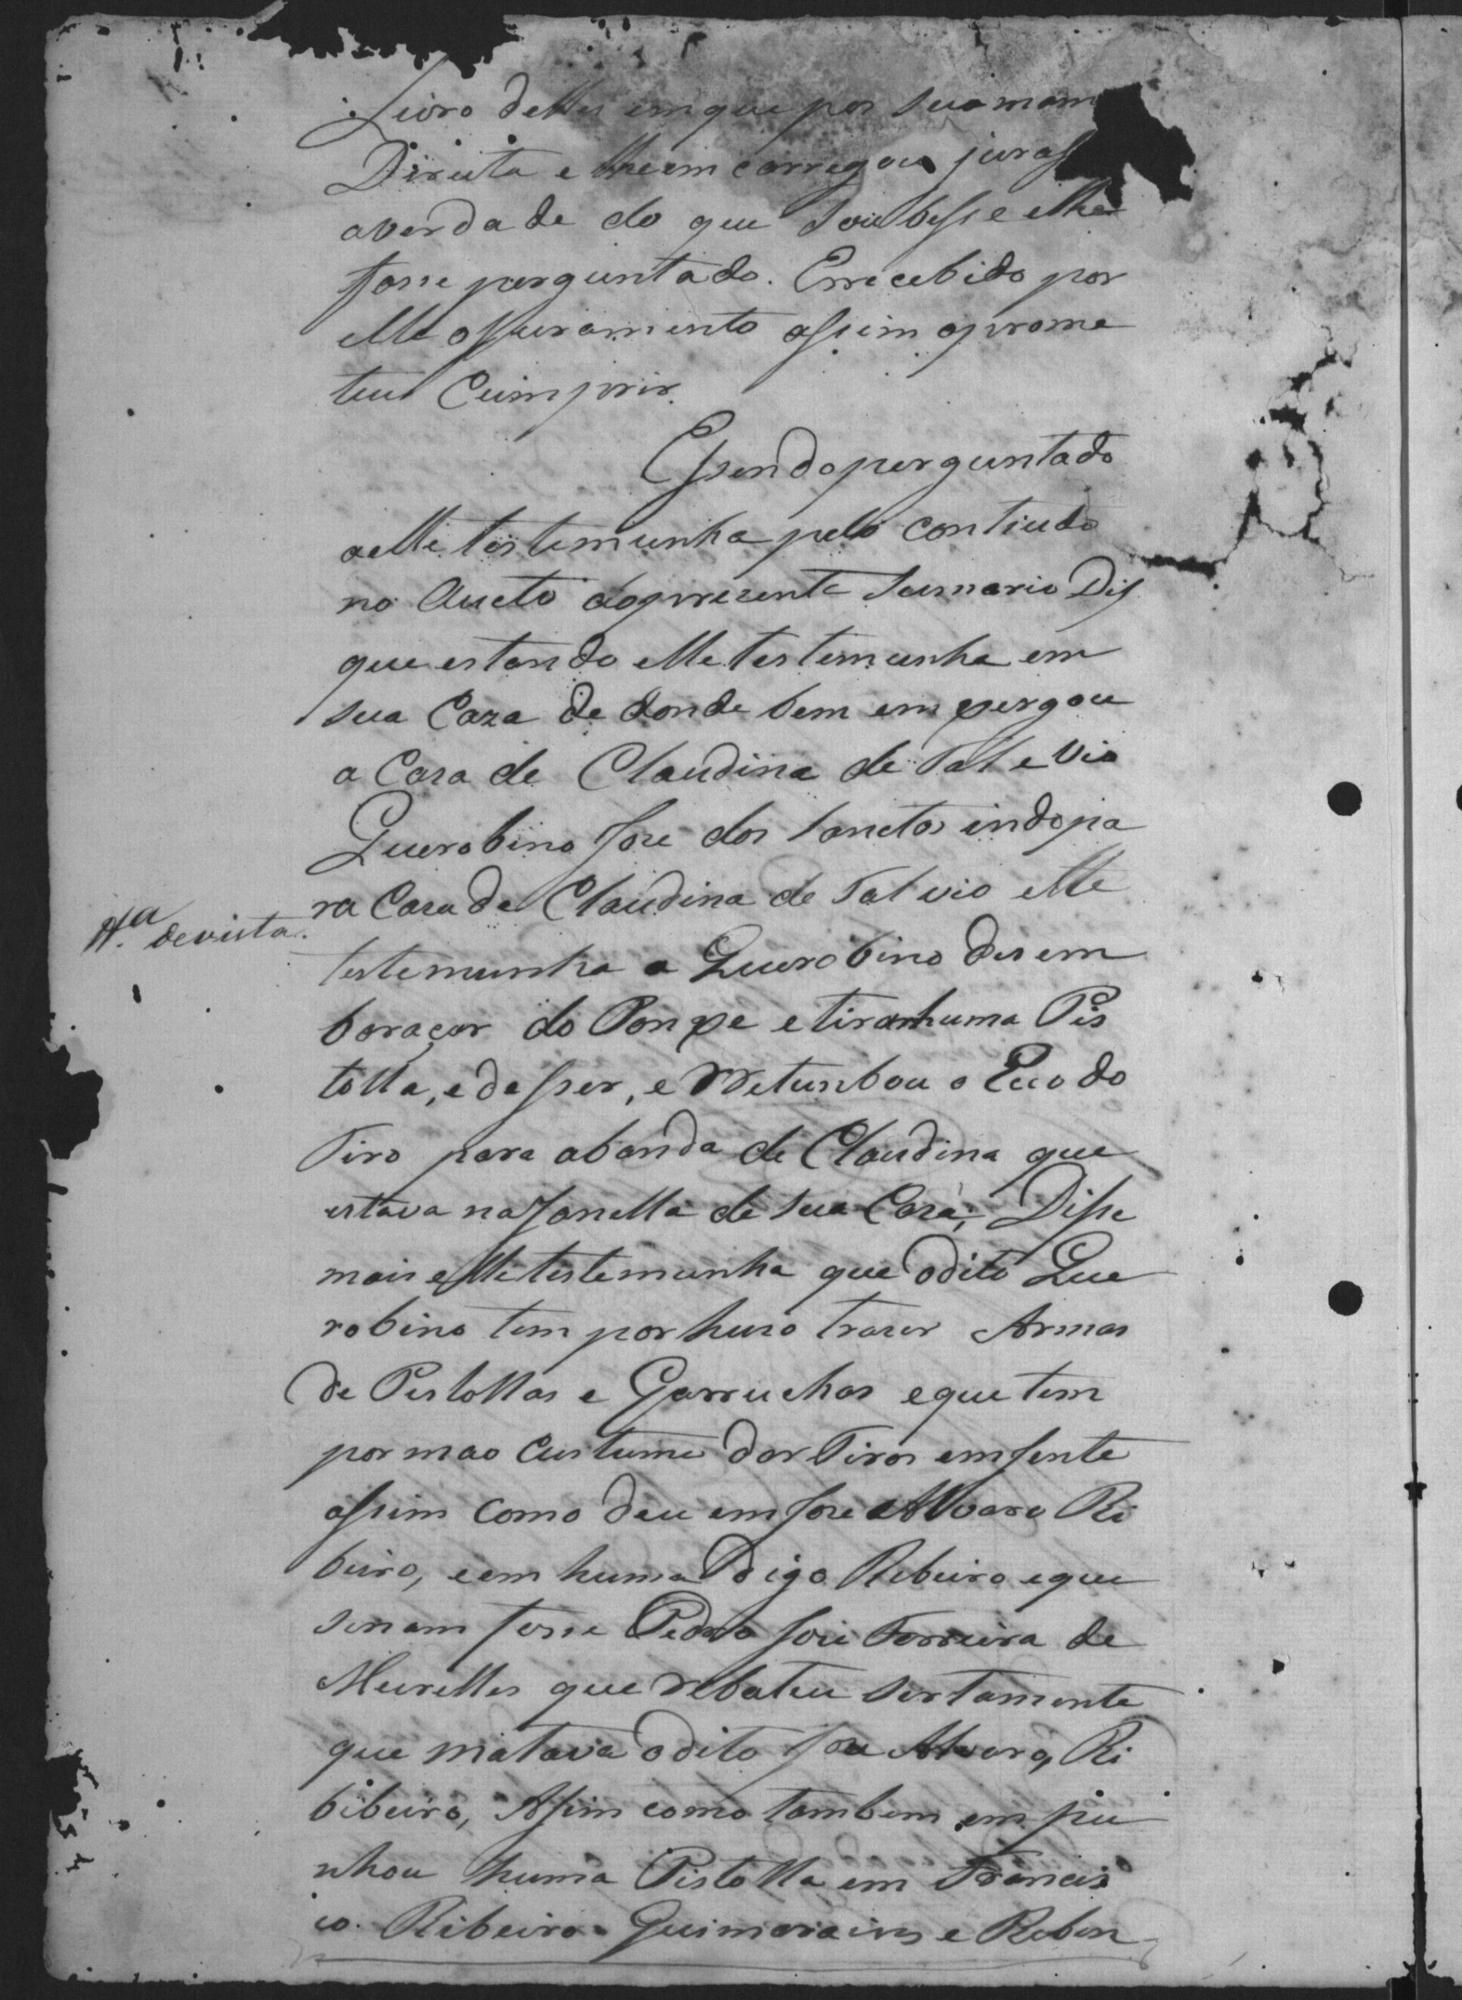 Livro delles em que pos sua mam
Direita e lhe em carregou juras
averdade do que soubesse e lhe
fosse perguntado. Errecebido por
elle ojuramento assim oprome
teu Cumprir.
Esendo perguntado
a elle testemunha pelo contiudo
no Aucto do prezente Sumario Dis
que estando elle testemunha em
sua Caza de donde bem emxergou
a Casa de Claudina de Tal e vio
Querobino Joze dos Sanctos indo pa
ra Casa de Claudina de Tal vio elle
Ta. de vista.
testemunha a Querobino desem
baraçar do Ponxe e tirar huma Pis
tolla, e desper, e Retumbou o Eco do
Tiro para abanda de Claudina que
estava na Janella de sua Casa, Disse
mais elle testemunha que odito Que
robino tem por huzo trazer Armas
de Pistollas e Garruchas e que tem
por mao Custume dar Tiros em Jente
assim como deu em Joze Alvaro Ri
beiro, e em huma Digo Ribeiro e que
senam fosse Pedro Joze Ferreira de
Meirelles que rebateu sertamente
que matava odito Joze Alvaro, Ri
bibeiro, Assim como tambem em pu
nhou huma Pistolla em Francis
co Ribeiro Guimarains e Reben